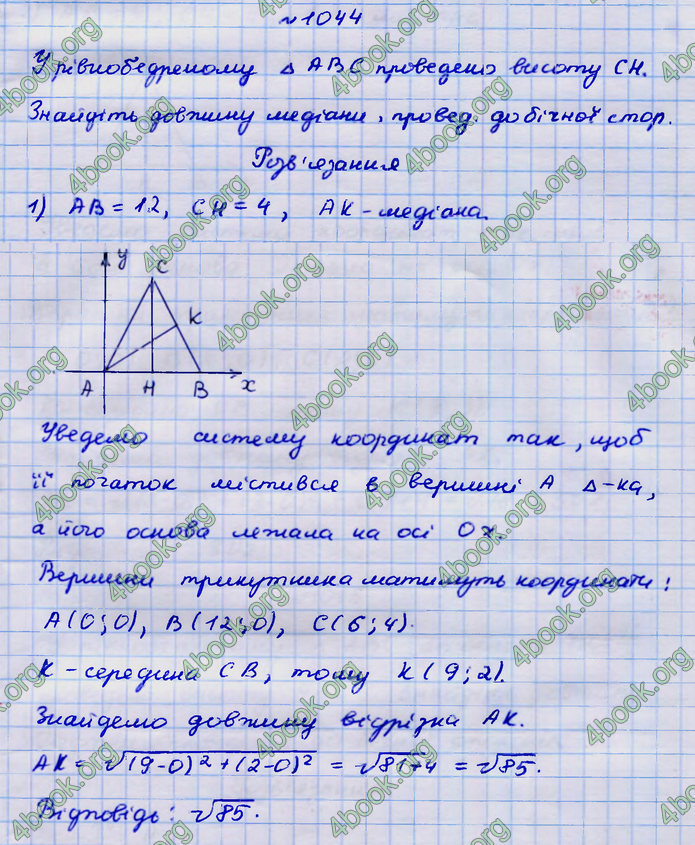 №1044
У рівнобедреному △ ABC проведено висоту CH.
Знайдіть довжину медіани, провед. до бічної стор.
Розв'язання
1) AB = 12, CH = 4, AK - медіана.
y
C
K
A H B x
Уведемо систему координат так, щоб
її початок містився в вершині A △-ка,
а його основа лежала на осі Ox.
Вершини трикутника матимуть координати:
A(0;0), B(12;0), C(6;4).
K - середина CB, тому K(9;2).
Знайдемо довжину відрізка AK.
AK = √(9-0)²+(2-0)² = √81+4 = √85.
Відповідь: √85.
4book.org